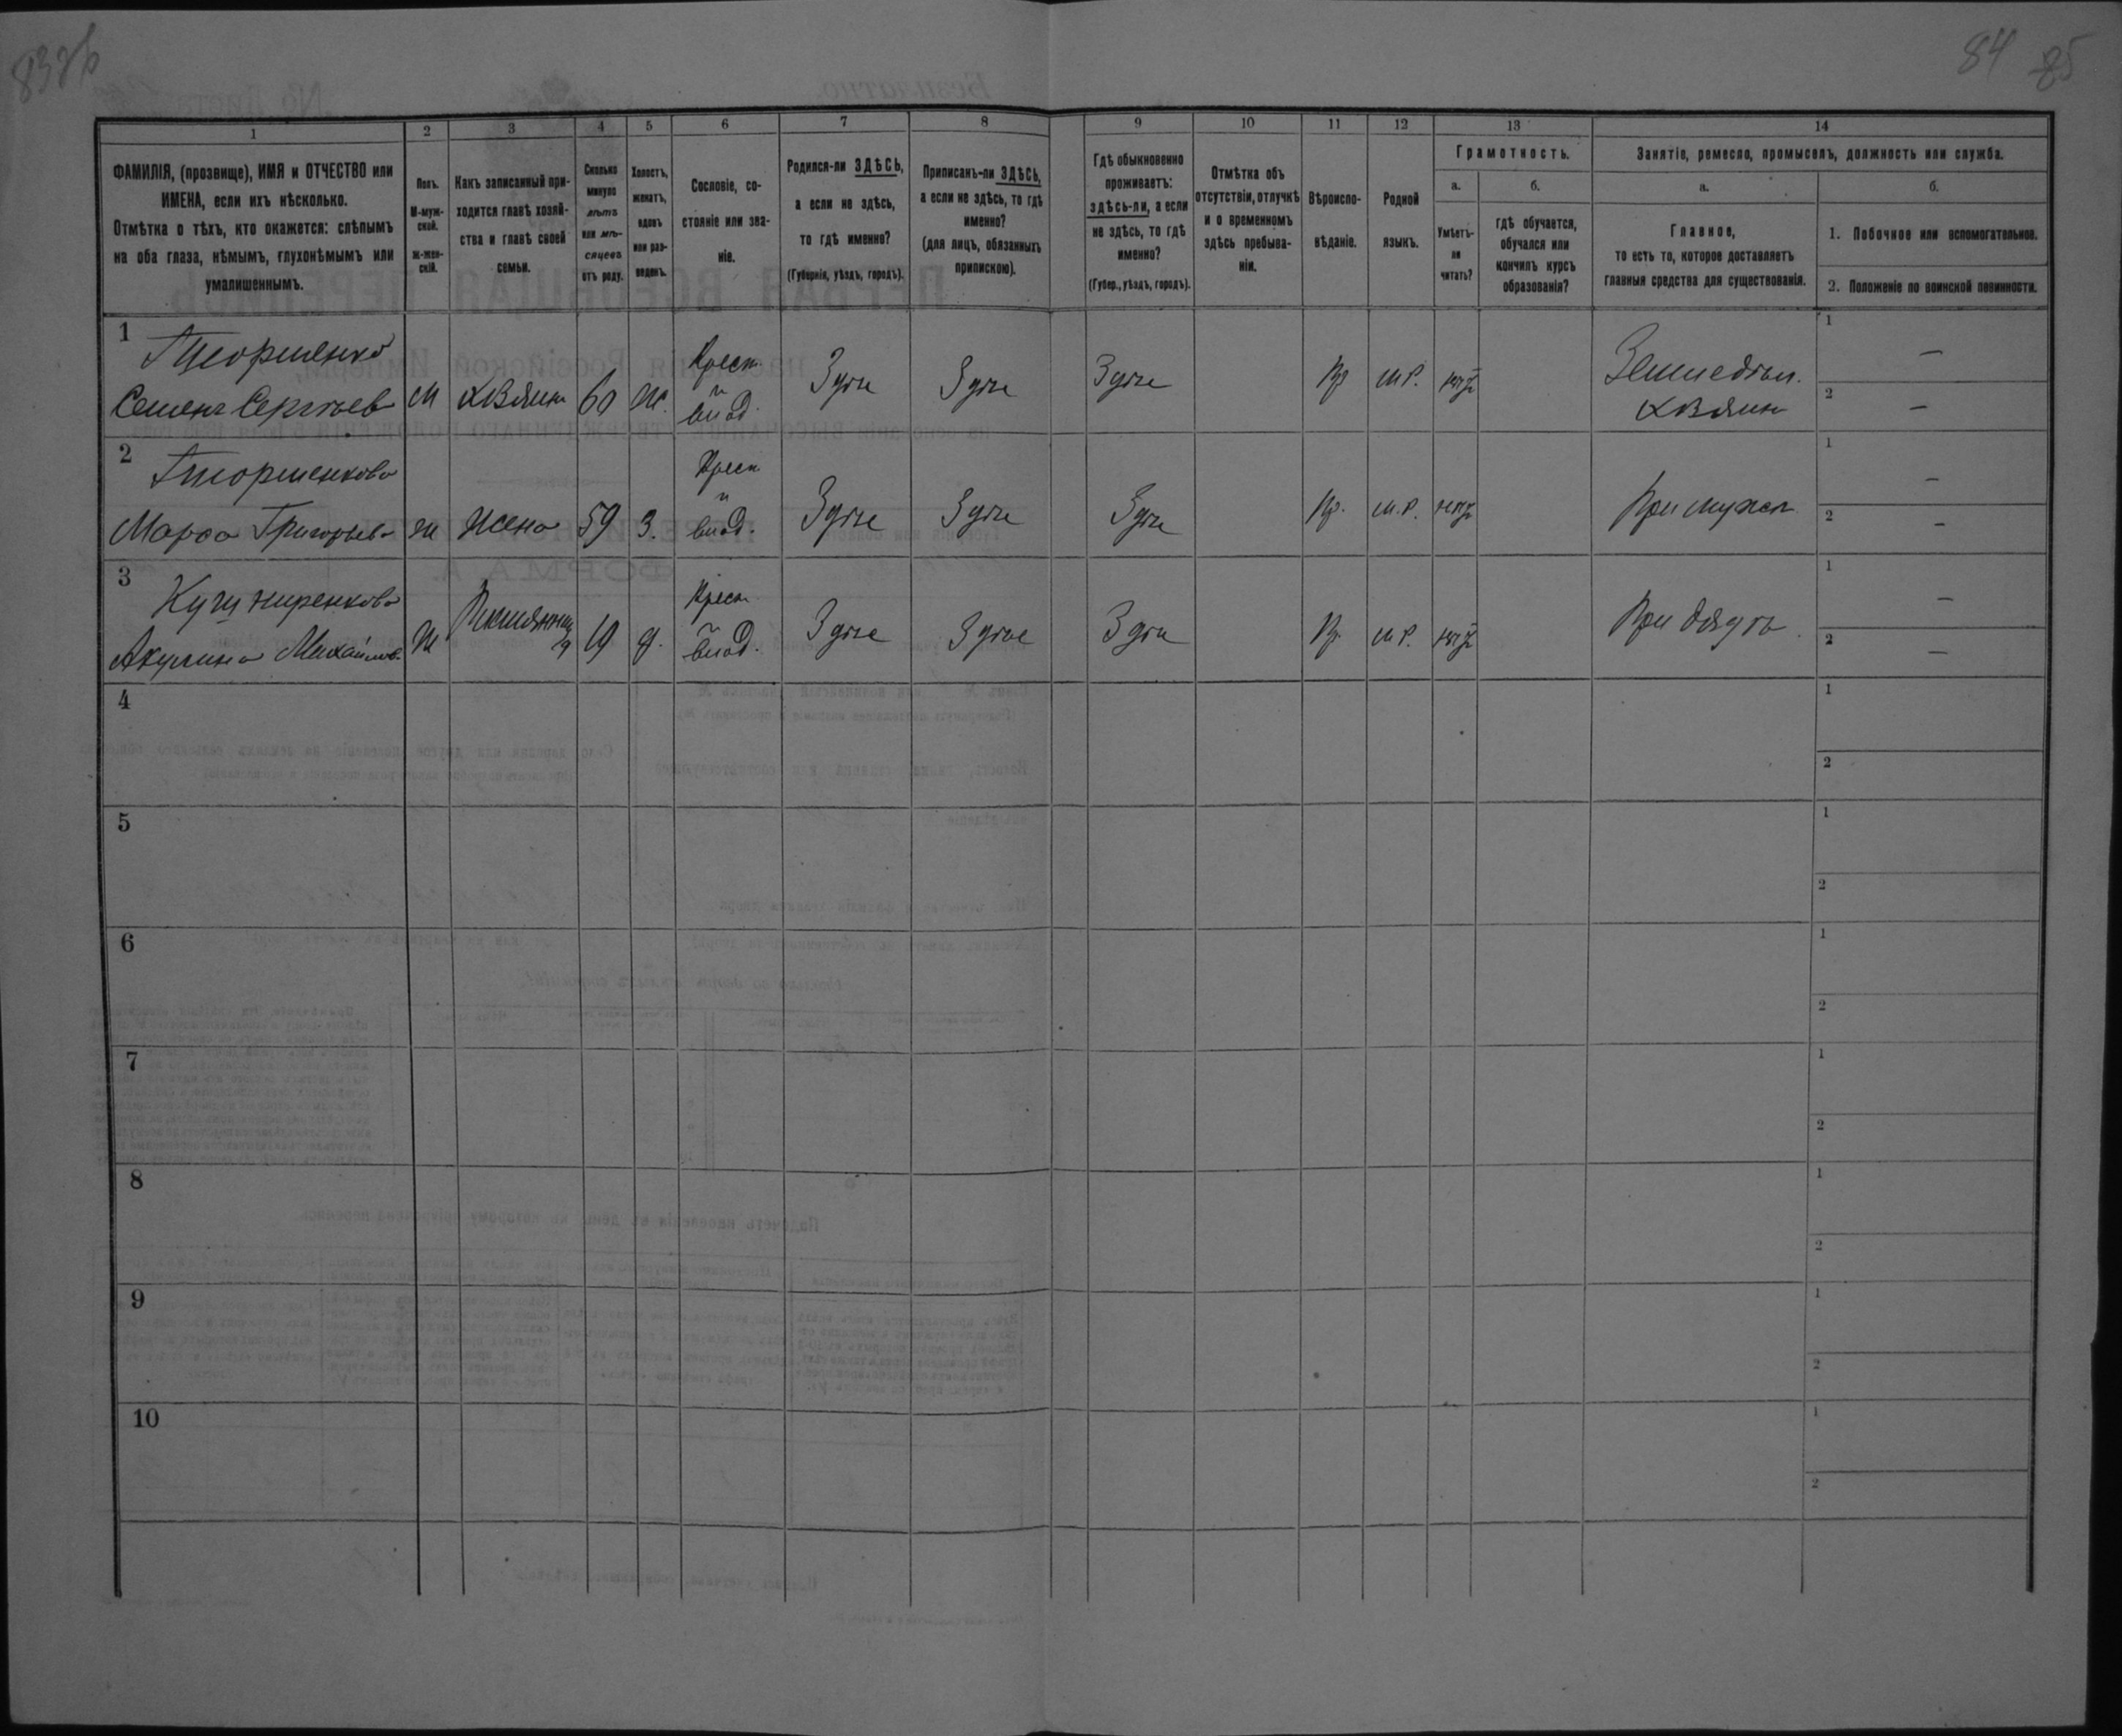 83об
84 85
1
2
3
4
5
6
7
8
9
10
11
12
13
14
ФАМИЛІЯ, (прозвище), ИМЯ и ОТЧЕСТВО или
ИМЕНА, если ихъ нѣсколько.
Отмѣтка о тѣхъ, кто окажется: слѣпымъ
на оба глаза, нѣмымъ, глухонѣмымъ или
умалишеннымъ.
Полъ.
М-муж-
ской.
Ж-жен-
скій.
Какъ записанный при-
ходится главѣ хозяй-
ства и главѣ своей
семьи.
Сколько
минуло
лѣтъ
или мѣ-
сяцевъ
отъ роду.
Холостъ,
женатъ,
вдовъ
или раз-
веденъ.
Сословіе, со-
стояніе или зва-
ніе.
Родился-ли ЗДѢСЬ,
а если не здѣсь,
то гдѣ именно?
(Губернія, уѣздъ, городъ).
Приписанъ-ли ЗДѢСЬ,
а если не здѣсь, то гдѣ
именно?
(для лицъ, обязанныхъ
припискою).
Гдѣ обыкновенно
проживаетъ:
здѣсь-ли, а если
не здѣсь, то гдѣ
именно?
(Губер., уѣздъ, городъ).
Отмѣтка объ
отсутствіи, отлучкѣ
и о временномъ
здѣсь пребыва-
ніи.
Вѣроиспо-
вѣданіе.
Родной
языкъ.
Грамотность.
а.
б.
Умѣетъ-
ли
читать?
гдѣ обучается,
обучался или
кончилъ курсъ
образованія?
Занятіе, ремесло, промыселъ, должность или служба.
а.
б.
Главное,
то есть то, которое доставляетъ
главныя средства для существованія.
1. Побочное или вспомогательное.
2. Положеніе по воинской повинности.
1
Семенъ Сергѣев
М
хозяинъ
60
ж.
Крест.
Здѣсь
Здѣсь
Здѣсь
Пр
м.р.
нѣтъ
Земледѣл.
хозяинъ
1 —
2 —
2
Марфа Григорьева
ж
Жена
59
з.
Крест
Здѣсь
Здѣсь
Здѣсь
Пр.
м.р.
нѣтъ
При мужѣ
1 —
2 —
3
Акулина Михайлов.
ж
19
д.
Крест
Здѣсь
Здѣсь
Здѣсь
Пр.
м.р.
нѣтъ
При дядѣ
1 —
2 —
4
1
2
5
1
2
6
1
2
7
1
2
8
1
2
9
1
2
10
1
2